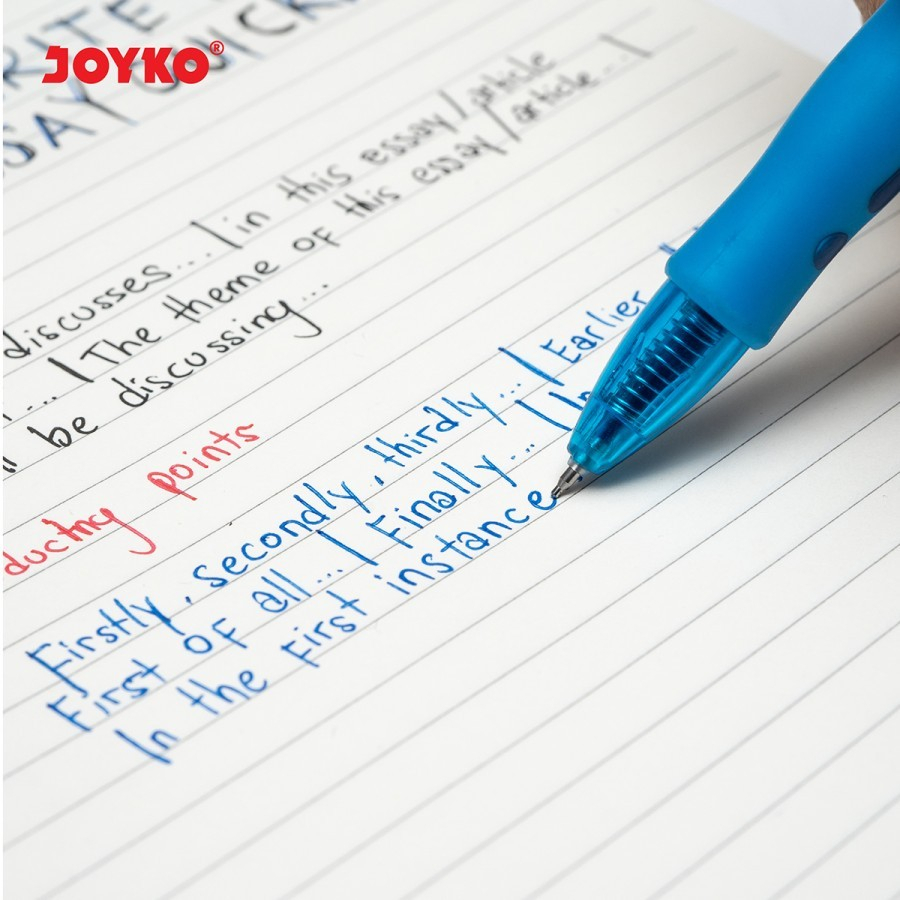 JOYKO®
RITE
SAY QUICK
discusses... | in this essay/article
... | The theme of this essay/article... |
be discussing...
ducting points
Firstly, secondly, thirdly... | Earlier
First of all... | Finally... |
In the first instance